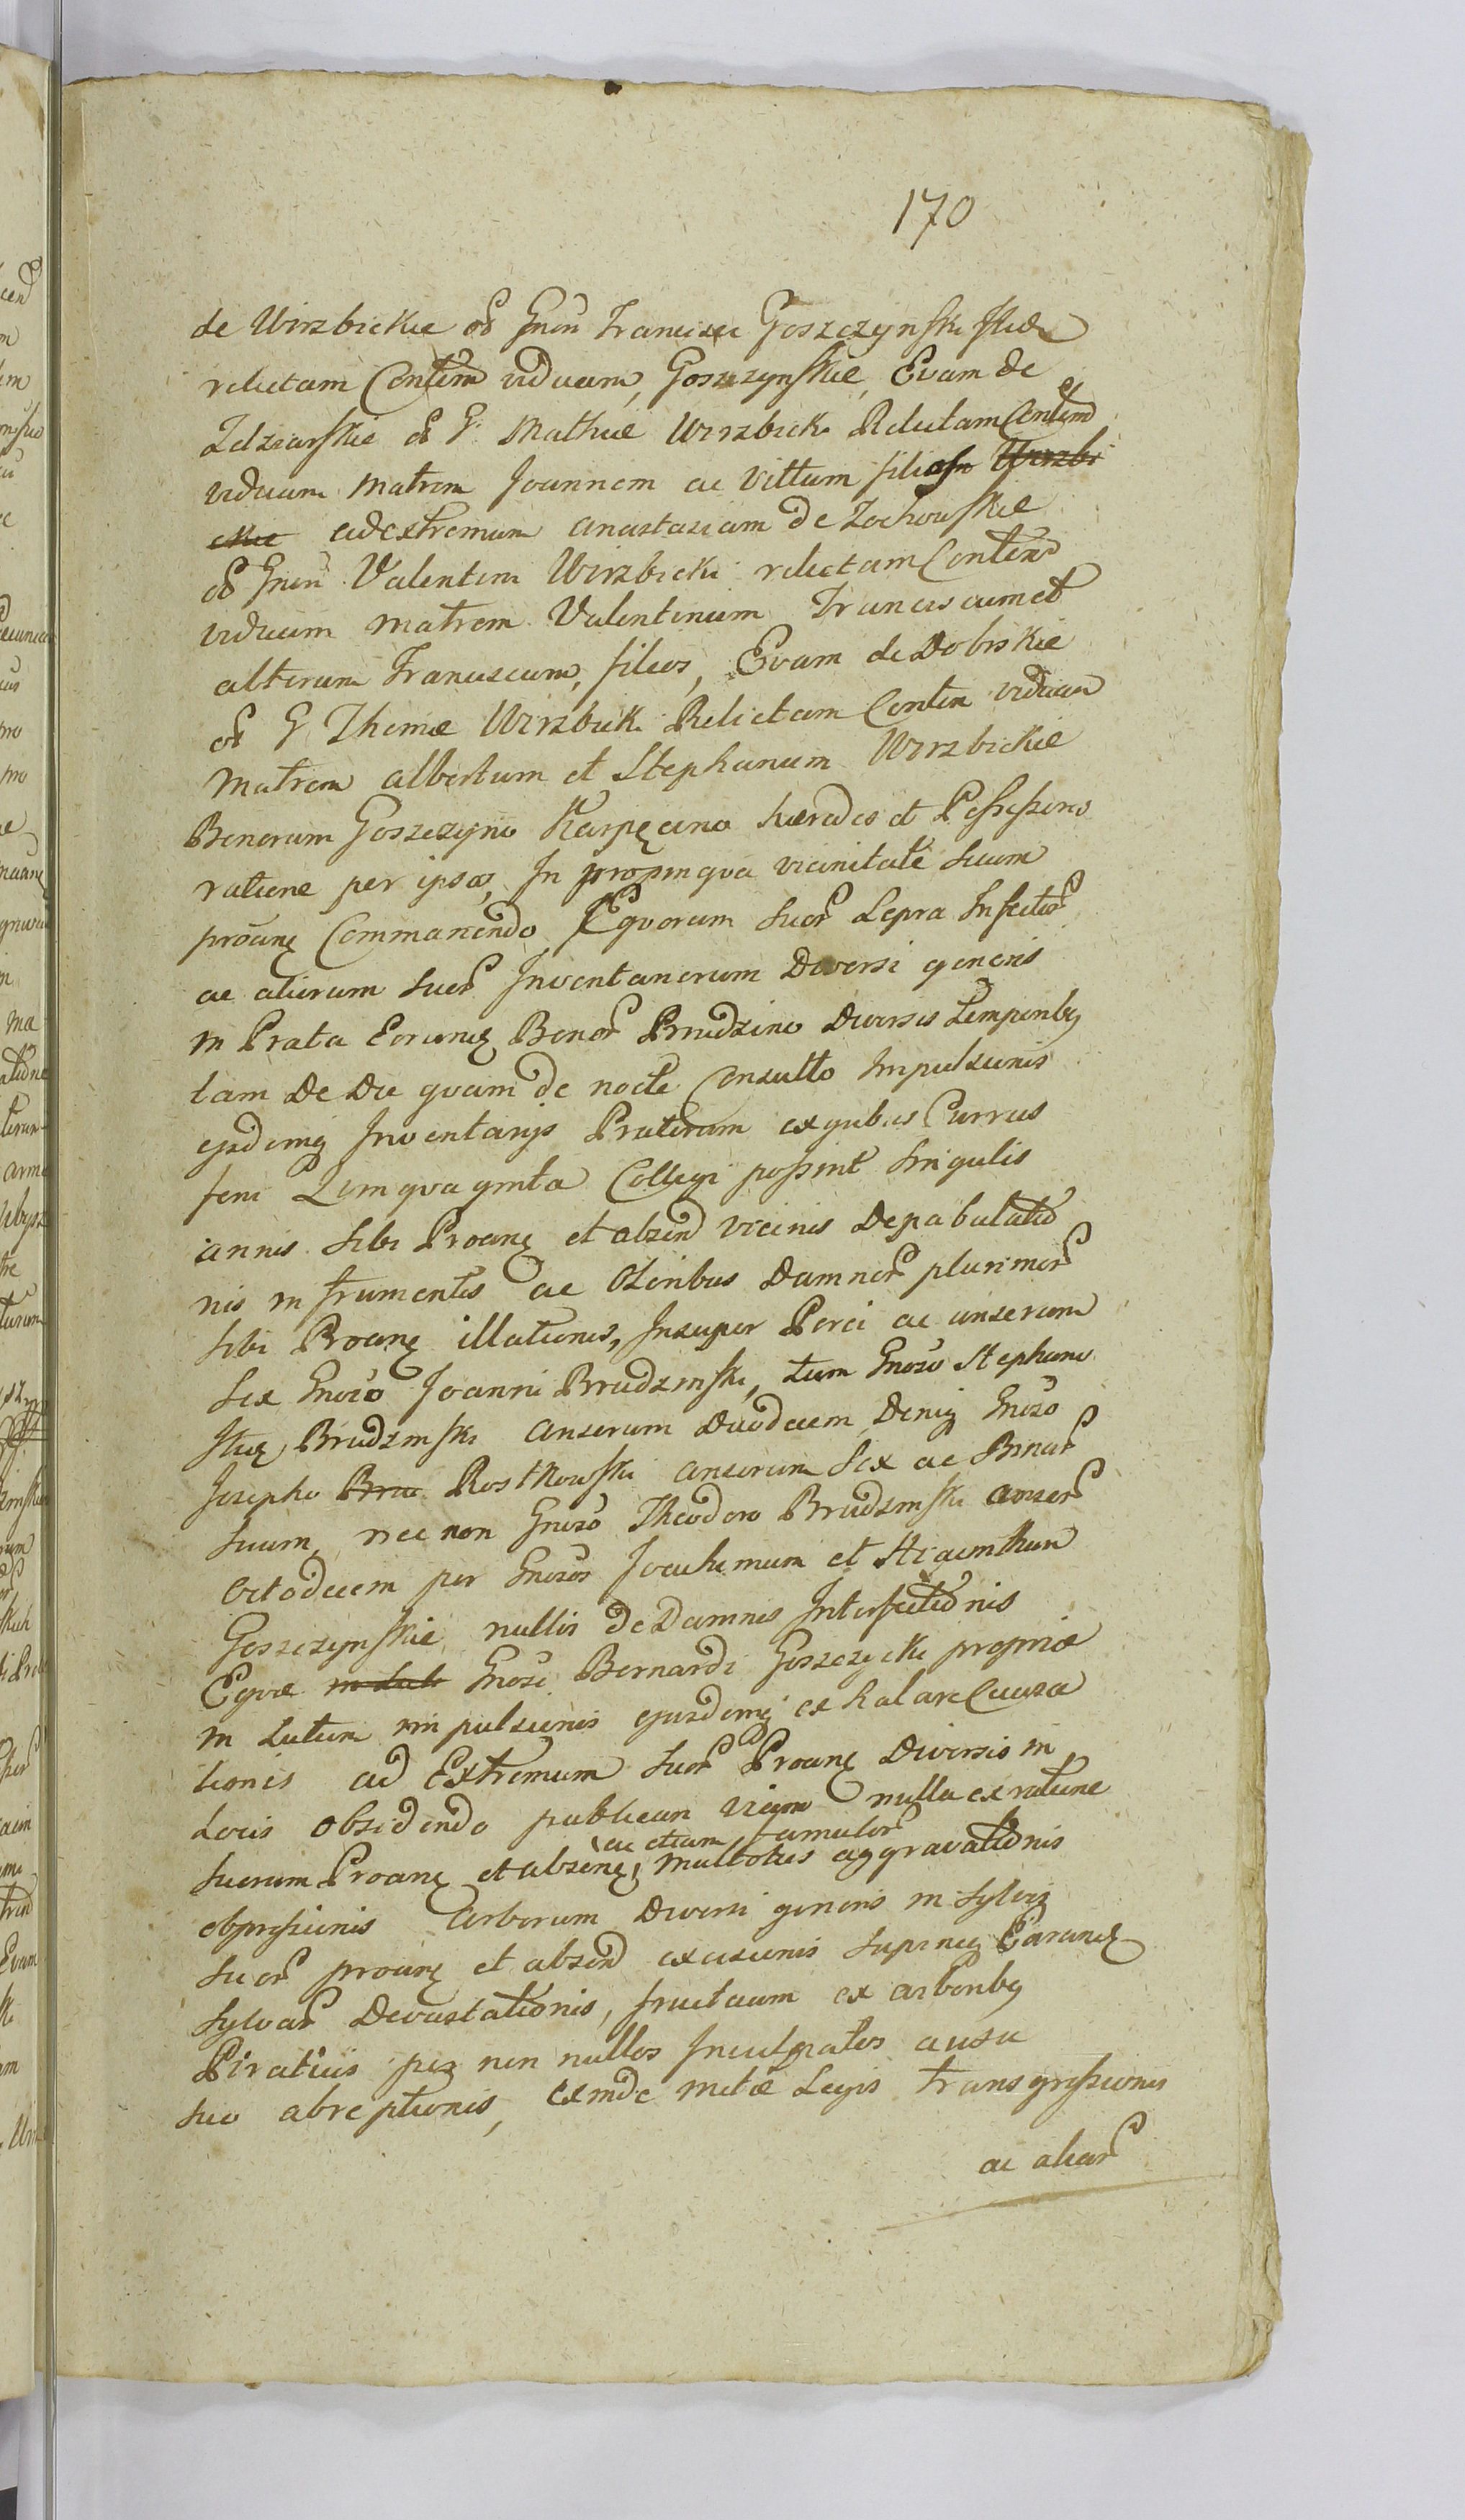 170
de Wirzbickie os Gnen Francisci Goszczynski
relictam Contem viduam, Goszczynskie, Evam de
Zdziarskie os G. Mathiæ Wirzbicki Relictam Contem
viduam Matrem Joannem ac Vittum filios Wirzbi
ckie ad extremum Anastasiam de Zochowskie
os Gnen Valentini Wirzbicki relictam Contem
viduam matrem Valentinum Franciscum et
alterum Franciscum, filios, Evam de Dobrskie
os G Thomæ Wirzbicki Relictam Conten viduam
Matrem albertum et Stephanum Wirzbickie
Bonorum Goszczyno Karpęcino hæredes et Possessores
ratione per ipsos, In propinqva vicinitate suum
proanq Commanendo Eqvorum suor Lepra Infector
ac aliorum suor Inventariorum Diversi generis
in Prata Eorunq Bonor Brudzino Diversis Temporibq
tam De Die qvam de nocte Consulto Impulsionis
ejsdemq Inventarijs Pratorum ex qvibus Currus
feni Qvinqvaginta Collegi possint Singulis
annis sibi Proanq et absend vicinis Depabulatio
nis in frumentis ac Oleribus Damnor plurimor
sibi Proanq illationis, Insuper Porci ac anserum
Sex Gnoso Joanni Brudzinski, tum Gnoso Stephano
Brudzinski Anserum Duodecem Deniq Gnoso
Josepho Bru Rostkowski anserum Sex ac Binar
Suum, nec non Gnoso Theodoro Brudzinski anser
Octodecem per Gnosos Joachimum et Hiacinthum
Goszczynskie nullis de Damnis Interfectionis
Eqvæ in lut Gnosi Bernardi Goszczycki propriæ
in Lutum impulsionis ejusdemq ex halare Causa
tionis ad Extremum suor Proanq Diversis in
Locis obsidendo publicam viam nulla ex ratione
ac etiam famulor
suorum Proanq et absenq, multoties aggravationis
obpressionis Arborum Diversi generis in Sylvis
suor proanq et absend excisionis supinæq Earunq
Sylvar Devastationis, fructuum ex arboribq
Piratiis per non nullos Inculpatos ausu
suo abreptionis, Exinde metæ Legis transgressionis
ac aliar